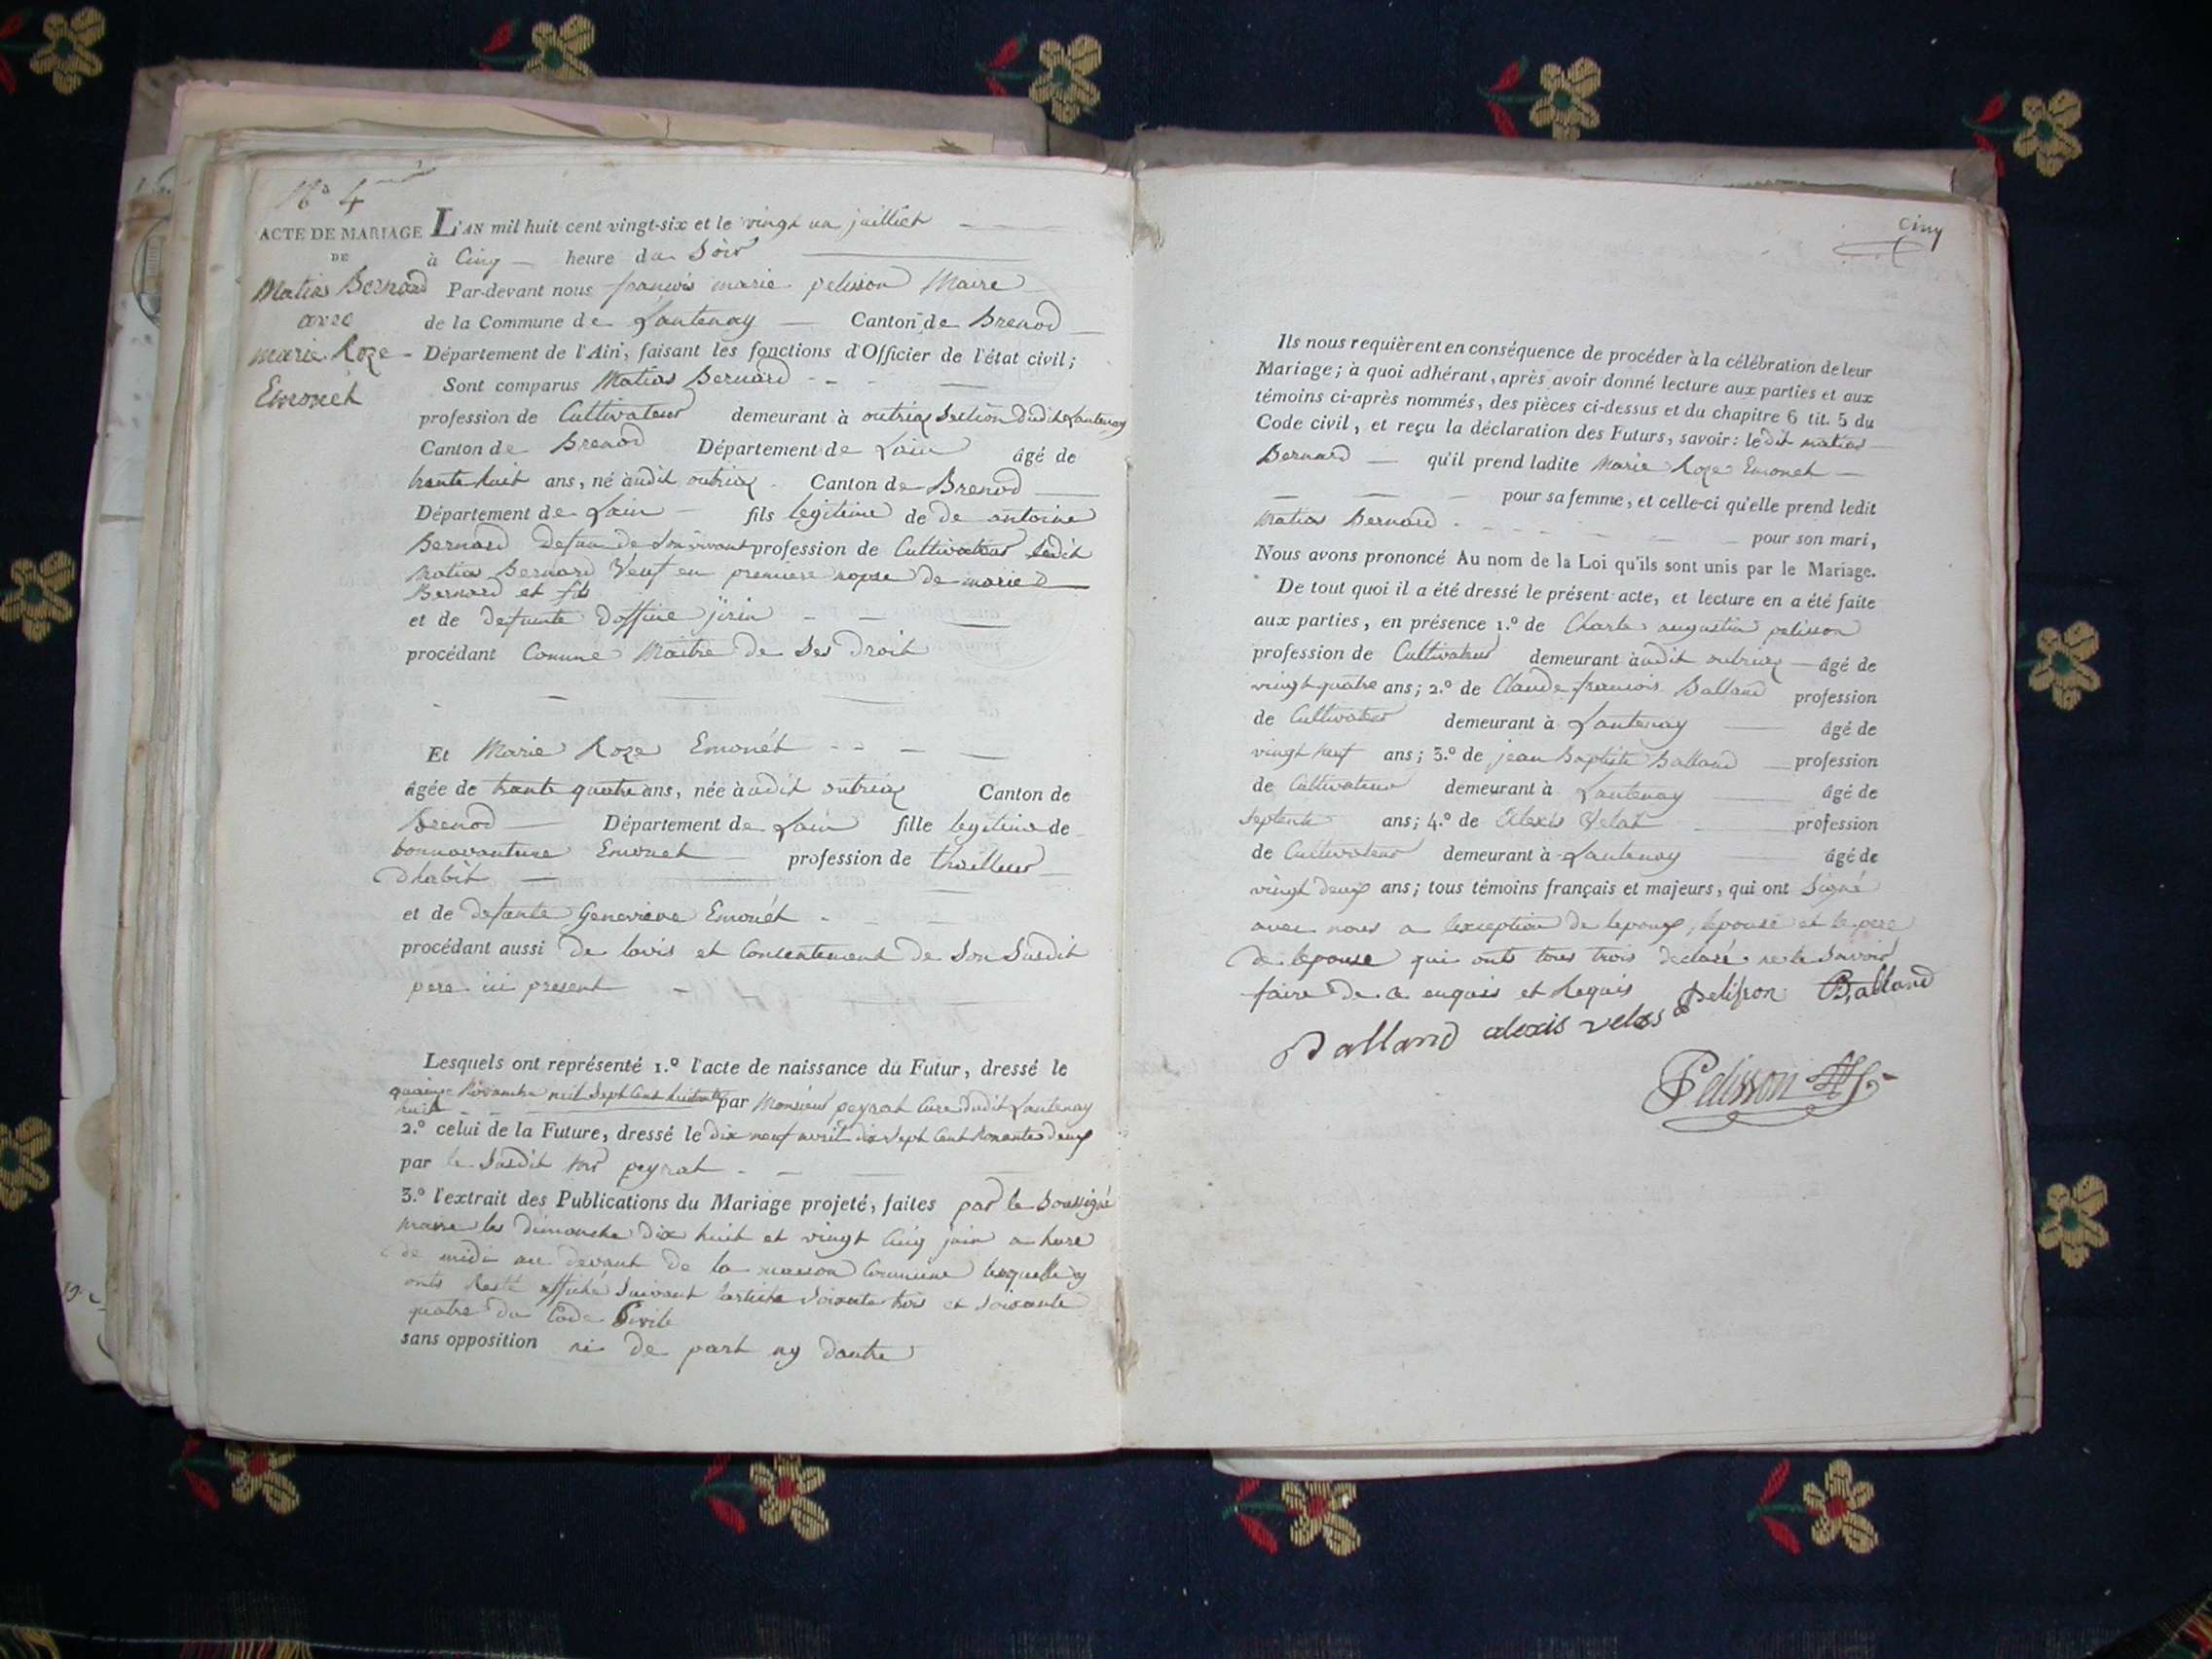 N° 4
ACTE DE MARIAGE
DE
Matias Bernard
avec
marie Roze
Emonét
L'AN mil huit cent vingt-six et le vingt un juilliet
à Cinq heure du Soir
Par-devant nous françois marie pelisson Maire
de la Commune de Lantenay Canton de Brenod
Département de l'Ain, faisant les fonctions d'Officier de l'état civil;
Sont comparus Matias Bernard
profession de Cultivateur demeurant à outriaz Section dudit Lantenay
Canton de Brenod Département de Lain âgé de
trante huit ans, né audit outriaz Canton de Brenod
Département de Lain fils legitime de de antoine
Bernard Defun de Son vivant profession de Cultivateur ledit
Matias Bernard Veuf en premiere nopse de marie
Bernard et fils
et de defunte
procédant Comme Maitre de Ses droit
Et Marie Roze Emonét
âgée de trante quatre ans, née audit outriaz Canton de
Brenod Département de Lain fille legitime de
bonnavanture Emonet profession de thailleur
dhabit
et de defunte Genevieve Emonét
procédant aussi de lavis et Consentement de Son Susdit
pere ici present
Lesquels ont représenté 1.° l'acte de naissance du Futur, dressé le
quainze Novambre mil Sept Cent huitante
huit par Monsieur peyrat Cure dudit Lantenay
2.° celui de la Future, dressé le dix neuf avril dix Sept Cent Nonante deux
par le Susdit Sr peyrat
3.° l'extrait des Publications du Mariage projeté, faites par le Soussigné
maire les dimanche dix huit et vingt Cinq juin a hure
de midi au devant de la maison Commune lesquelle y
onts Resté affiché Suivant larticle Soixante trois et Soixante
quatre du Code Civile
sans opposition ni de part ny dautre
Cinq
Ils nous requièrent en conséquence de procéder à la célébration de leur
Mariage; à quoi adhérant, après avoir donné lecture aux parties et aux
témoins ci-après nommés, des pièces ci-dessus et du chapitre 6 tit. 5 du
Code civil, et reçu la déclaration des Futurs, savoir: ledit matias
Bernard qu'il prend ladite Marie Roze Emonet
pour sa femme, et celle-ci qu'elle prend ledit
Matias Bernard
pour son mari,
Nous avons prononcé Au nom de la Loi qu'ils sont unis par le Mariage.
De tout quoi il a été dressé le présent acte, et lecture en a été faite
aux parties, en présence 1.° de Charle augustin pelisson
profession de Cultivateur demeurant audit outriaz âgé de
vingt quatre ans; 2.° de Claude francois Balland profession
de Cultivateur demeurant à Lantenay âgé de
vingt neuf ans; 3.° de jean Baptiste Balland profession
de Cultivateur demeurant à Lantenay âgé de
Septente ans; 4.° de Alexis Velat profession
de Cultivateur demeurant à Lantenay âgé de
vingt deux ans; tous témoins français et majeurs, qui ont Signé
avec nous a lexception de lepoux, lepouse et le pere
de lepouse qui onts tous trois declaré ne le Savoir
faire de ce enquis et Requis pelisson Balland
Balland alexis
Pelisson